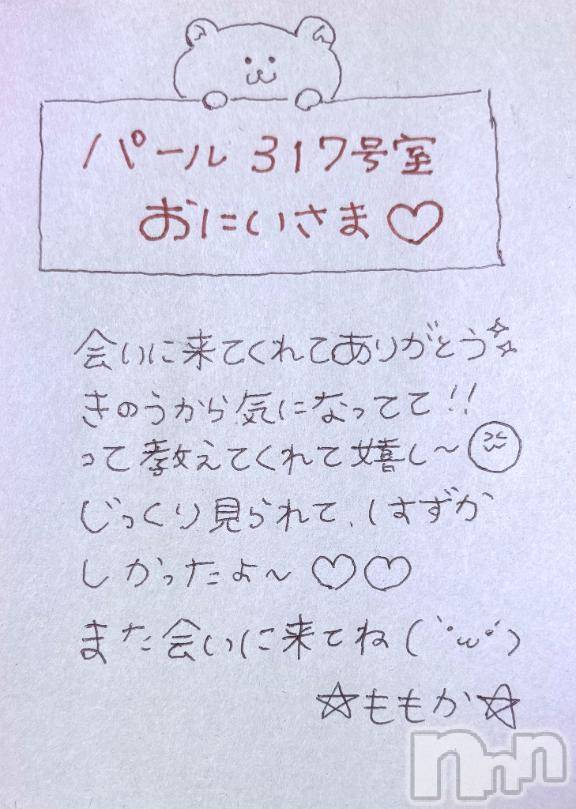 パール 317号室
おにいさま♡
会いに来てくれてありがとう
きのうから気になってて!!
って教えてくれて嬉し〜
じっくり見られて、はずか
しかったよ〜♡♡
また会いに来てね(`･ω･´)
☆ももか☆
nnn